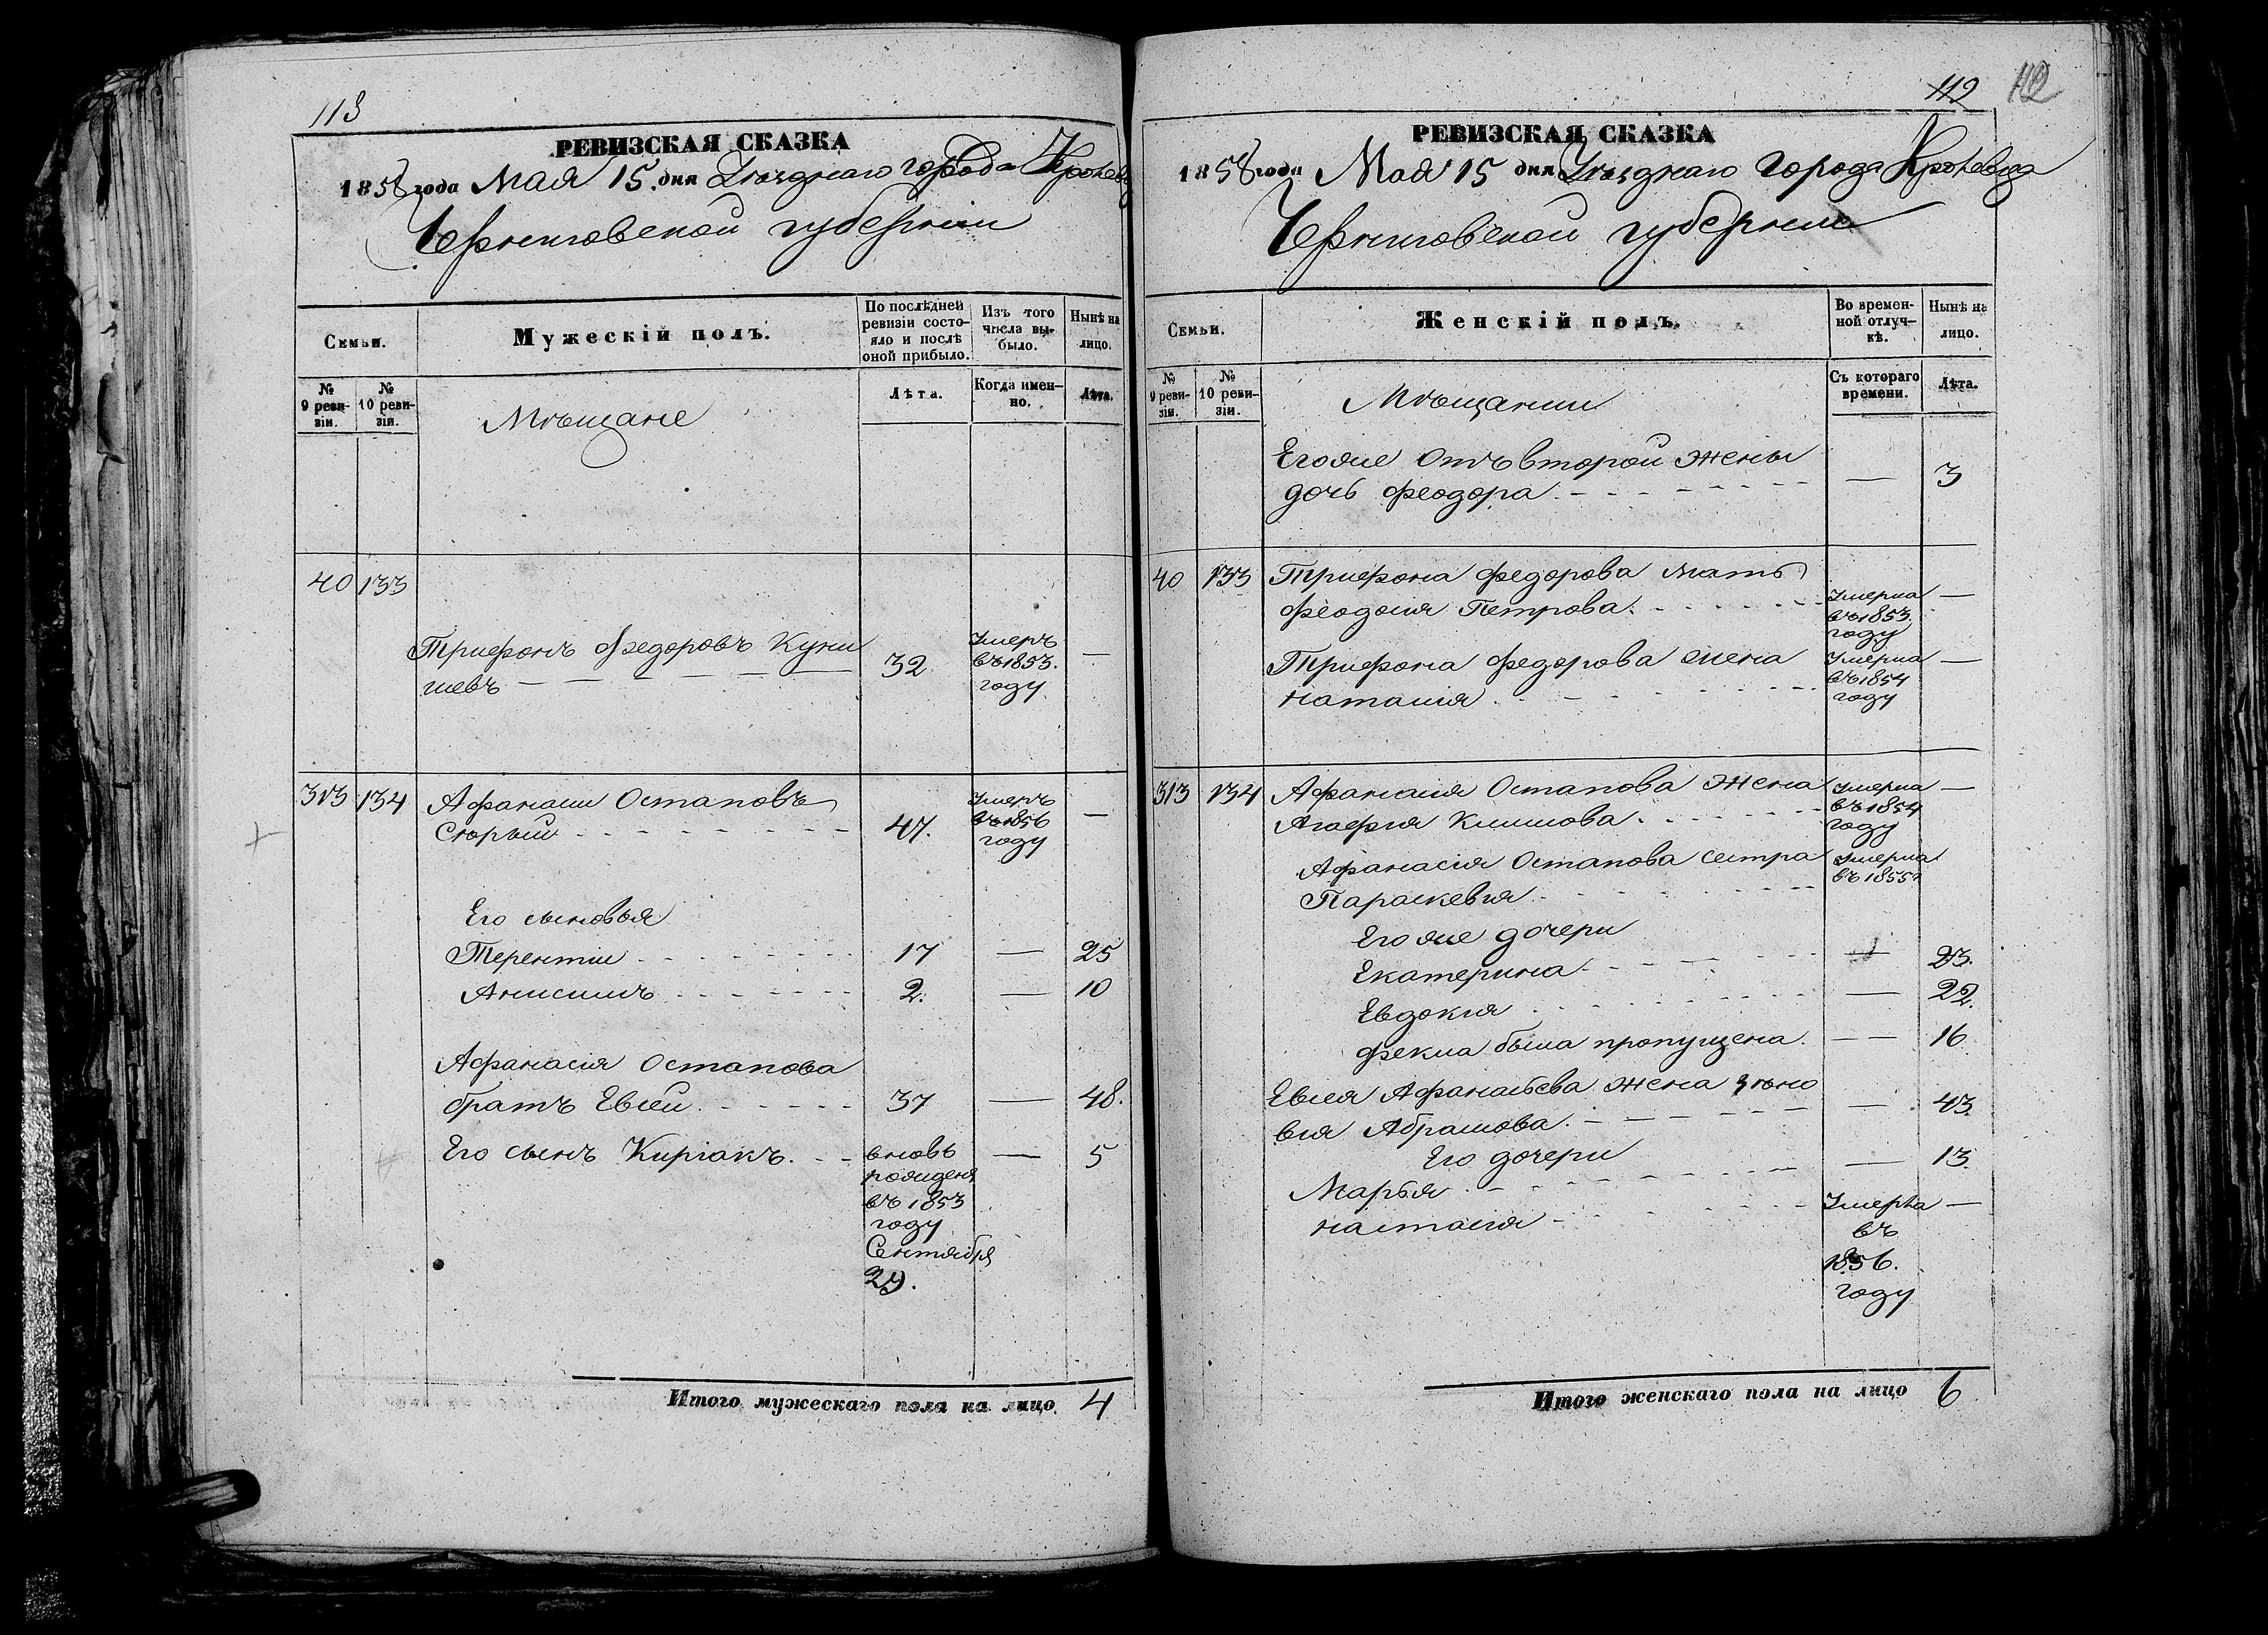 113
РЕВИЗСКАЯ СКАЗКА
1858 года Мая 15 дня Уѣзднаго города
Черниговской губерніи
Семьи.
Мужескій полъ.
По послѣдней ревизіи состояло и послѣ оной прибыло.
Изъ того числа выбыло.
Нынѣ на лицо.
№ 9 ревизіи.
№ 10 ревизіи.
Мѣщане
Лѣта.
Когда именно.
Лѣта.
40 133
Трифонъ Федоровъ Куни
шевъ — 32 Умеръ въ 1853. году —
313 134 Афанасий Остаповъ
Сюрый 47. Умеръ въ 1856 году —
Его сыновья
Терентий 17 — 25
Анисимъ 2. — 10
Афанасія Остапова
братъ Евсей 37 — 48.
Его сынъ Киріакъ. вновь рожденъ въ 1853 году Сентября 29. — 5
Итого мужескаго пола на лицо. 4
112 112
РЕВИЗСКАЯ СКАЗКА
1858 года Мая 15 дня Уѣзднаго Города Кролевца
Черниговской губерніи
Семьи.
Женскій полъ.
Во временной отлучкѣ.
Нынѣ на лицо.
№ 9 ревизіи.
№ 10 ревизіи.
Мѣщанки
Съ котораго времени.
Лѣта.
Егоже Отъ второй жены
дочь Феодора — 3
40 133 Трифона Федорова мать
Феодосия Петрова. Умерла въ 1853. году —
Трифона Федорова жена
Наталия Умерла въ 1854 году —
313 134 Афанасия Остапова Жена
Агафия Климова. Умерла въ 1854 году —
Афанасия Остапова сестра
Параскевия Умерла въ 1855
Его же дочери
Екатерина — 23.
Евдокия — 22.
Фекла была пропущена. — 16
Евсея Афанасьева жена Зѣно
вия Абрамова. — 43
Его дочери
Марья — 13.
Настасия Умерла въ 1856. году —
Итого женскаго пола на лицо 6